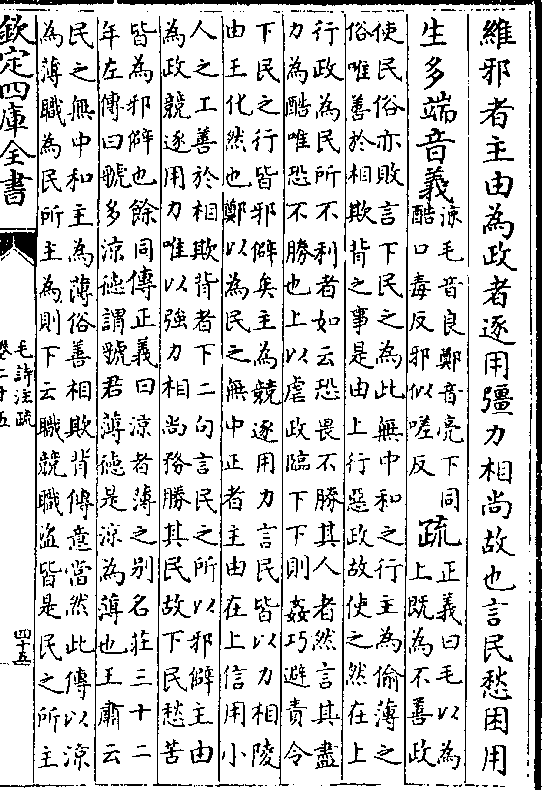 維邪者主由為政者逐用彊力相尚故也言民愁困用
生多端音義
涼毛音良鄭音亮下同
酷口毒反邪似嗟反
疏
正義曰毛以為
上既為不善政
使民俗亦敗言下民之為此無中和之行主為偷薄之
俗唯善於相欺背之事是由上行惡政故使之然在上
行政為民所不利者如云恐畏不勝其人者然言其盡
力為酷唯恐不勝也上以虐政臨下下則姦巧避責令
下民之行皆邪僻矣主為競逐用力言民皆以力相陵
由王化然也鄭以為民之無中正者主由在上信用小
人之工善於相欺背者下二句言民之所以邪僻主由
為政競逐用力唯以強力相尚務勝其民故下民愁苦
皆為邪僻也餘同傳正義曰涼者薄之別名莊三十二
年左傳曰虢多涼德謂虢君薄德是涼為薄也王肅云
民之無中和主為薄俗善相欺背傳意當然此傳以涼
為薄職為民所主為則下云職競職盜皆是民之所主
欽定四庫全書
毛詩注疏
卷二十五
四十五